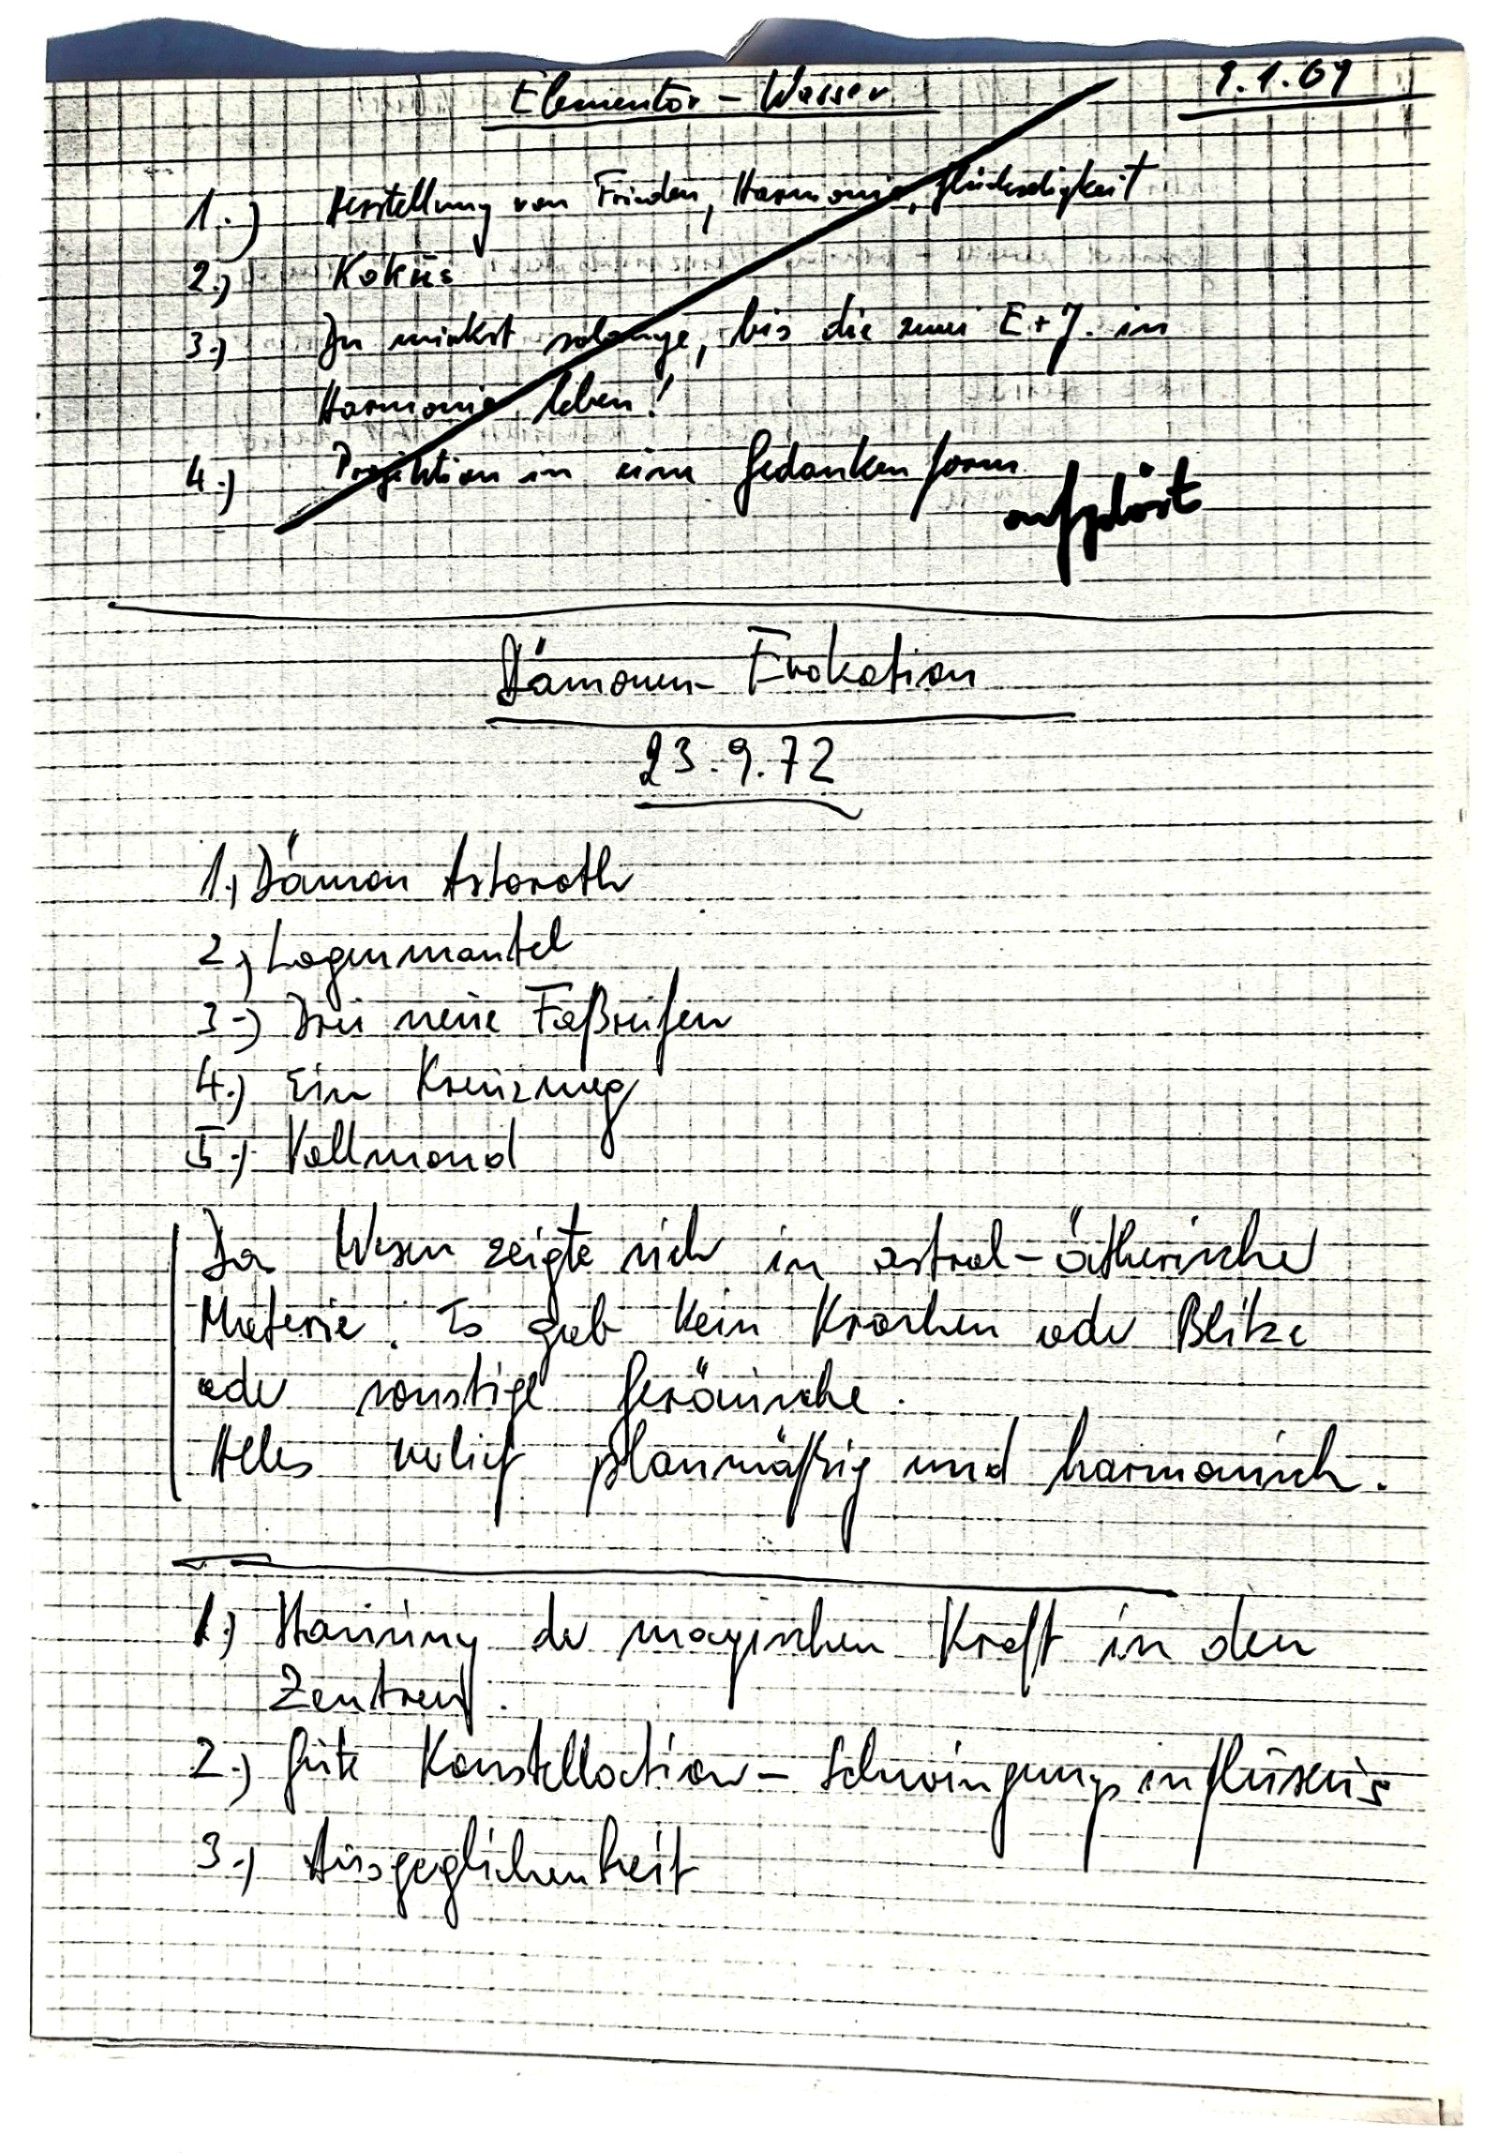 Elementar - Wasser 9.1.69
1.) Herstellung von Frieden, Harmonie, Glückseligkeit
2.) Kokūs
3.) Du wirkst solange, bis die zwei E + J. in
Harmonie leben!
4.) Projektion in eine Gedankenform
aufgelöst
Dämonen - Evokation
23.9.72
1.) Dämon Astaroth
2.) Logenmantel
3.) Drei neue Faßreifen
4.) Ein Kreuzweg
5.) Vollmond
Das Wesen zeigte sich in astral-ätherischer
Materie. Es gab kein Krachen oder Blitze
oder sonstige Geräusche.
Alles verlief planmäßig und harmonisch.
1.) Stauung der magischen Kraft in den
Zentren.
2.) Gute Konstellation - Schwingungseinflüsse
3.) Ausgeglichenheit